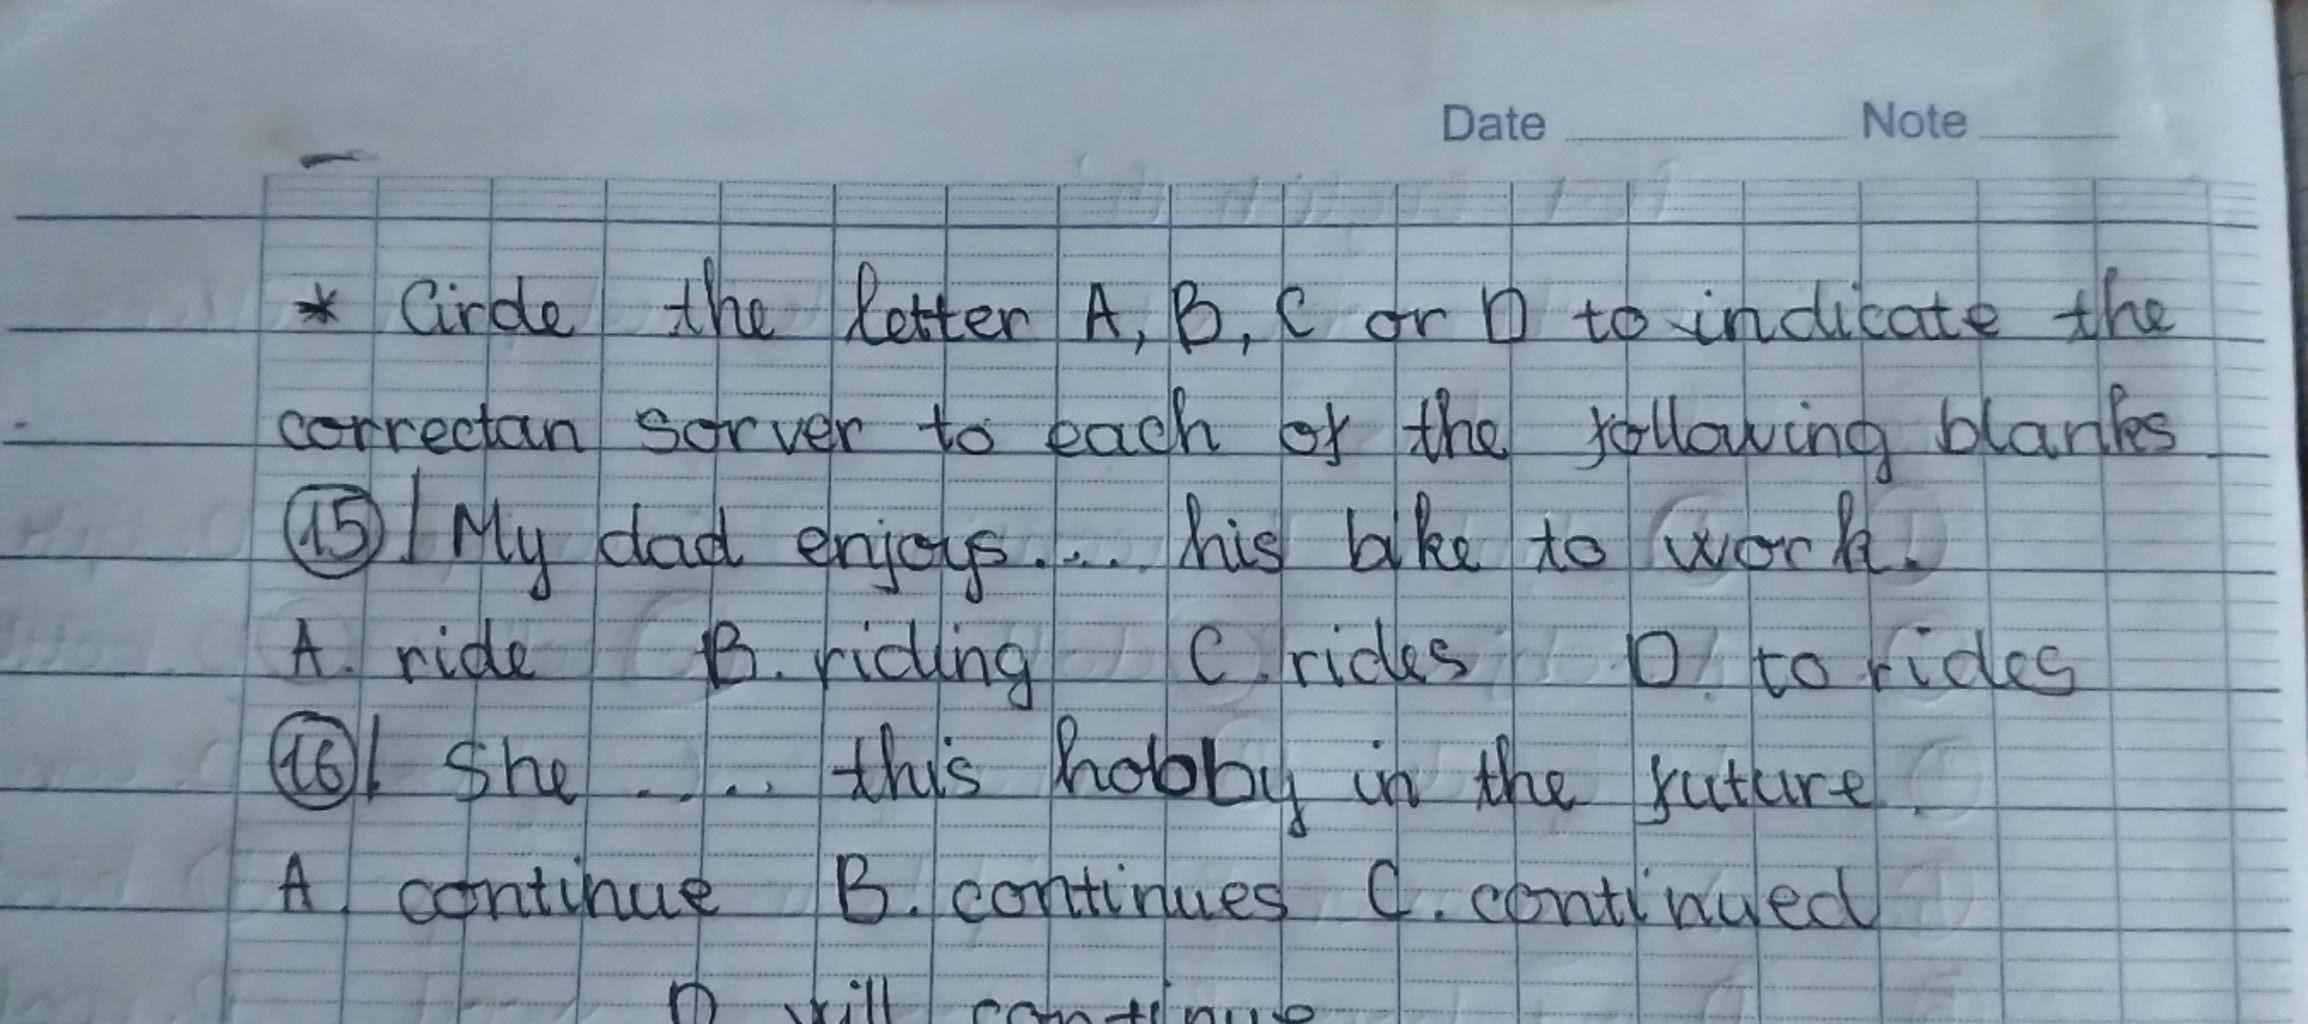 Date Note
* Circle the letter A, B, C or D to indicate the
correctan sorver to each of the following blanks
15/ My dad enjoys.... his bike to work.
A. ride B. riding C. rides D. to rides
16/ She .... this hobby in the future.
A. continue B. continues C. continued
D will continue